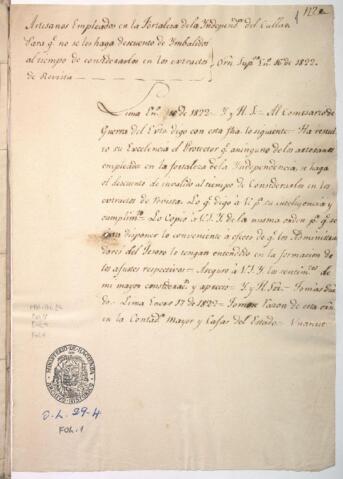 112
Artesanos Empleados en la Fortaleza de la Independª del Callao
Para qᵉ no se les haga descuento de Imbalidos
al tiempo de considerarlos en los extractos
de Revista
Orn Supᵒʳ Enᵒ 16 de 1822.
Lima Enᵒ 16 de 1822 = Y. y H. S. = Al Comisario de
Guerra del Exto digo con esta fha lo siguiente = Ha resuel
to su Excelencia el Protector qᵉ a ninguno de los artesanos
empleados en la fortaleza de la Independencia, se haga
el descuento de invalido al tiempo de Considerarlos en los
extractos de Revista. Lo qᵉ digo a V. pᵃ su inteligencia y
cumplimᵗᵒ Lo Copio a V.S.Y. de la misma orden pᵃ qᵉ se
sirva disponer lo conveniente a efecto de qᵉ los Administra
dores del Tesoro lo tengan entendido en la formacion de
los ajustes respectivos = Aseguro a V.S.Y. los sentimᵗᵒˢ de
mi mayor consideracⁿ y aprecio = Y. y H. S. = Tomas Gui
do = Lima Enero 17 de 1822 = Tomese Razon de esta orn
en la Contadª Mayor y Cajas del Estado = Unanue
MINISTERIO DE HACIENDA
O.L. 29-4
FOL. 1